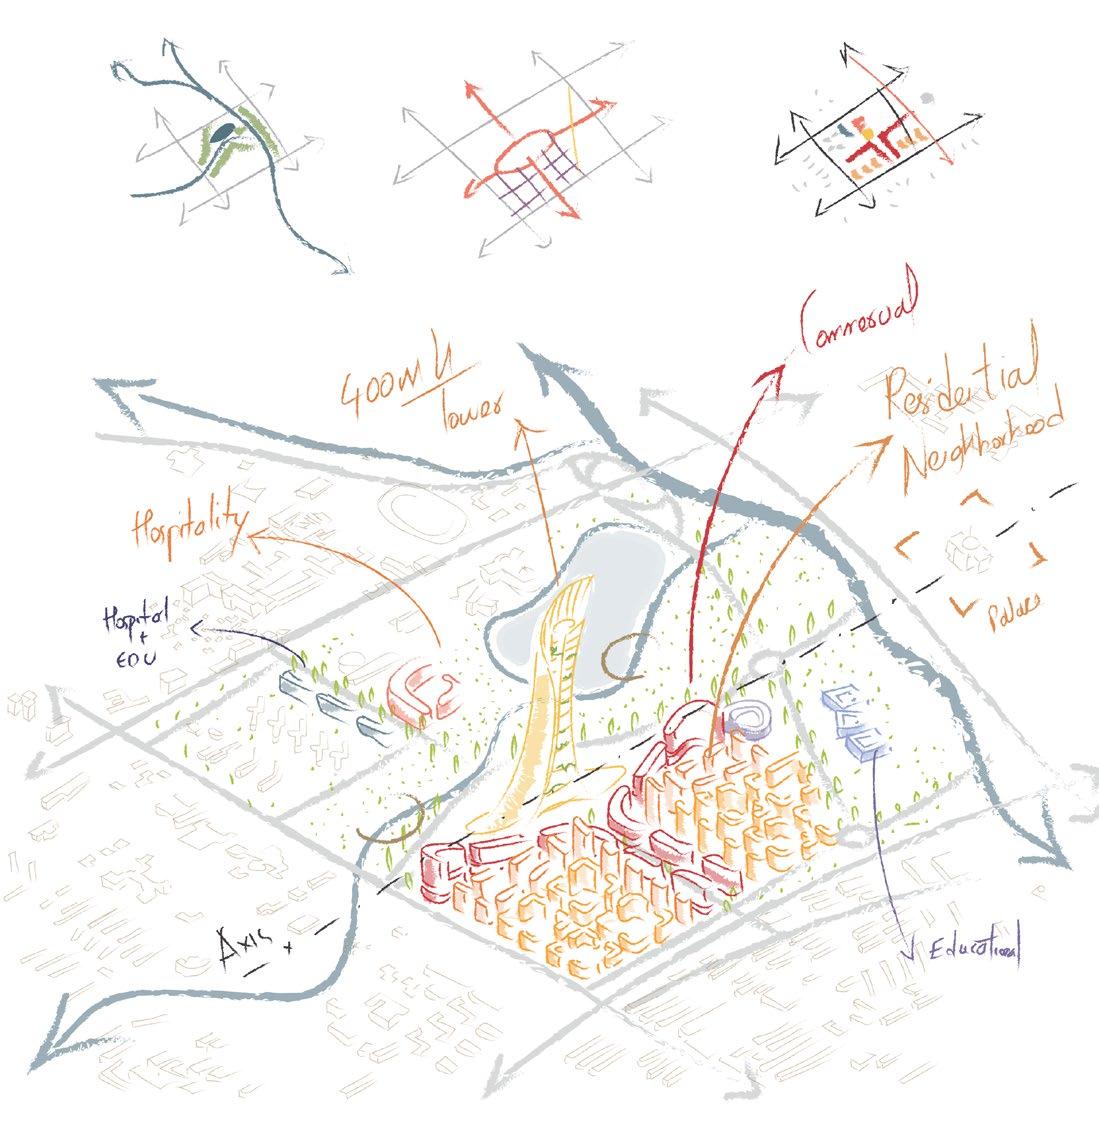 Commercial
400m H
Tower
Residential
Neighborhood
Hospitality
Hospital
+
EDU
Palace
Axis
Educational